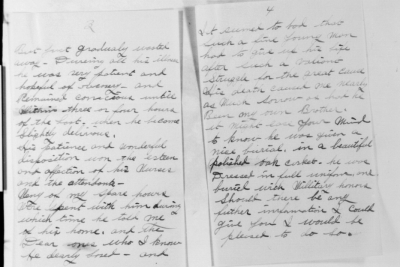 But just gradualy wasted
away - During all his illness
he was very patient and
hopeful of recovery - and
Remained conscious untill
within three or four hours
of the last, when he become
slightly delirious.
His Patience and wonderful
disposition won the esteem
and afection of his Nurses
and the attendents -
Many of my spare hours
I've spent with him during
which time he told me
of his home, and the
Dear ones who I know
he dearly loved - and
4
It seemed to bad that
Such a fine young man
had to give up his life
after such a valiant
struggle for the great cause
His death caused me nearly
as much sorrow as if he
Been my own Brother.
it might ease your Mind
to know he was given a
nice burial, in a beautiful
polished oak casket. he was
Dressed in full uniform and
buried with Military honors
Should there be any
further information I Could
give you I would be
pleased to do so.